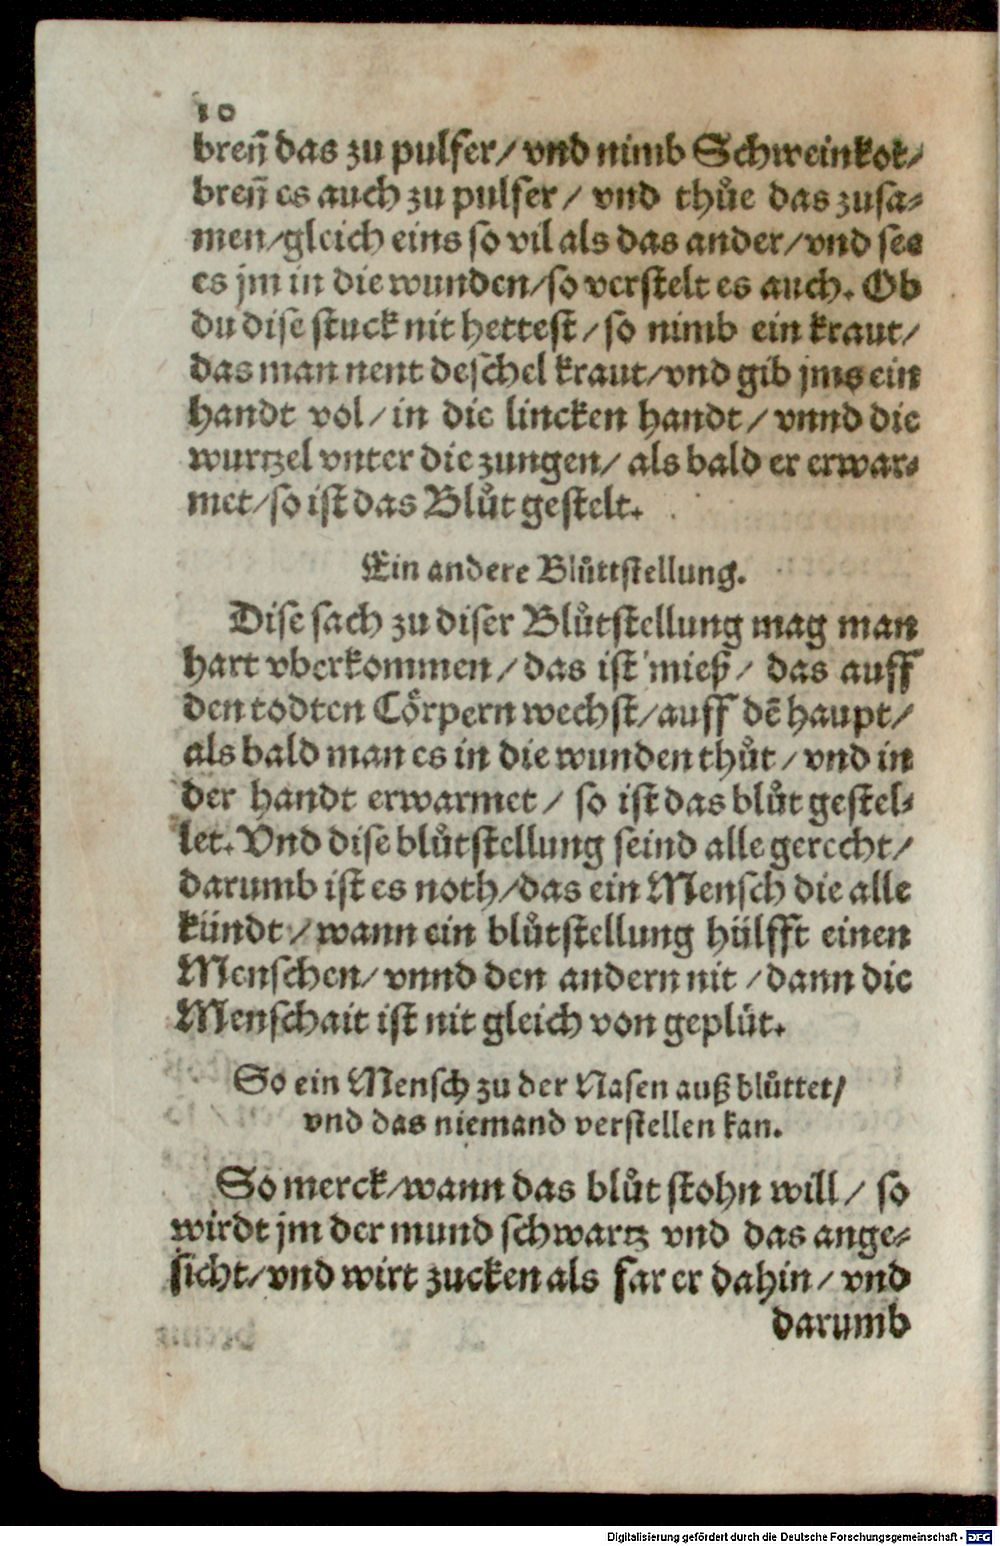 10
breñ das zu pulfer/ vnd nimb Schweinkot/
breñ es auch zu pulfer/ vnd thůe das zusa-
men/gleich eins so vil als das ander/vnd see
es jm in die wunden/so verstelt es auch. Ob
du dise stuck nit hettest/so nimb ein kraut/
das man nent deschel kraut/vnd gib jms ein
handt vol/in die lincken handt/vnnd die
wurtzel vnter die zungen/als bald er erwar-
met/so ist das Blůt gestelt.
Ein andere Blůttstellung.
Dise sach zu diser Blůtstellung mag man
hart vberkommen/das ist mieß/ das auff
den todten Cörpern wechst/auff dē haupt/
als bald man es in die wunden thůt/vnd in
der handt erwarmet/ so ist das blůt gestel-
let. Vnd dise blůtstellung seind alle gerecht/
darumb ist es noth/das ein Mensch die alle
kündt/wann ein blůtstellung hülfft einen
Menschen/vnnd den andern nit/dann die
Menschait ist nit gleich von geplüt.
So ein Mensch zu der Nasen auß blůttet/
vnd das niemand verstellen kan.
So merck/wann das blůt stohn will/ so
wirdt jm der mund schwartz vnd das ange-
sicht/vnd wirt zucken als far er dahin/vnd
darumb
Digitalisierung gefördert durch die Deutsche Forschungsgemeinschaft - DFG